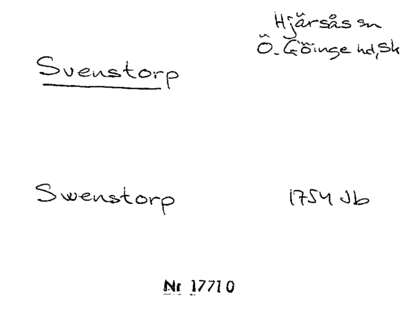 Hjärsås sn
Ö. Göinge hd, Sk
Svenstorp
Swenstorp 1754 Jb
Nr 17710